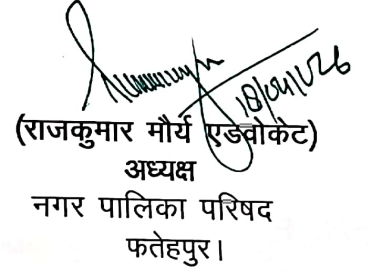 18/04/026
(राजकुमार मौर्य एडवोकेट)
अध्यक्ष
नगर पालिका परिषद
फतेहपुर।